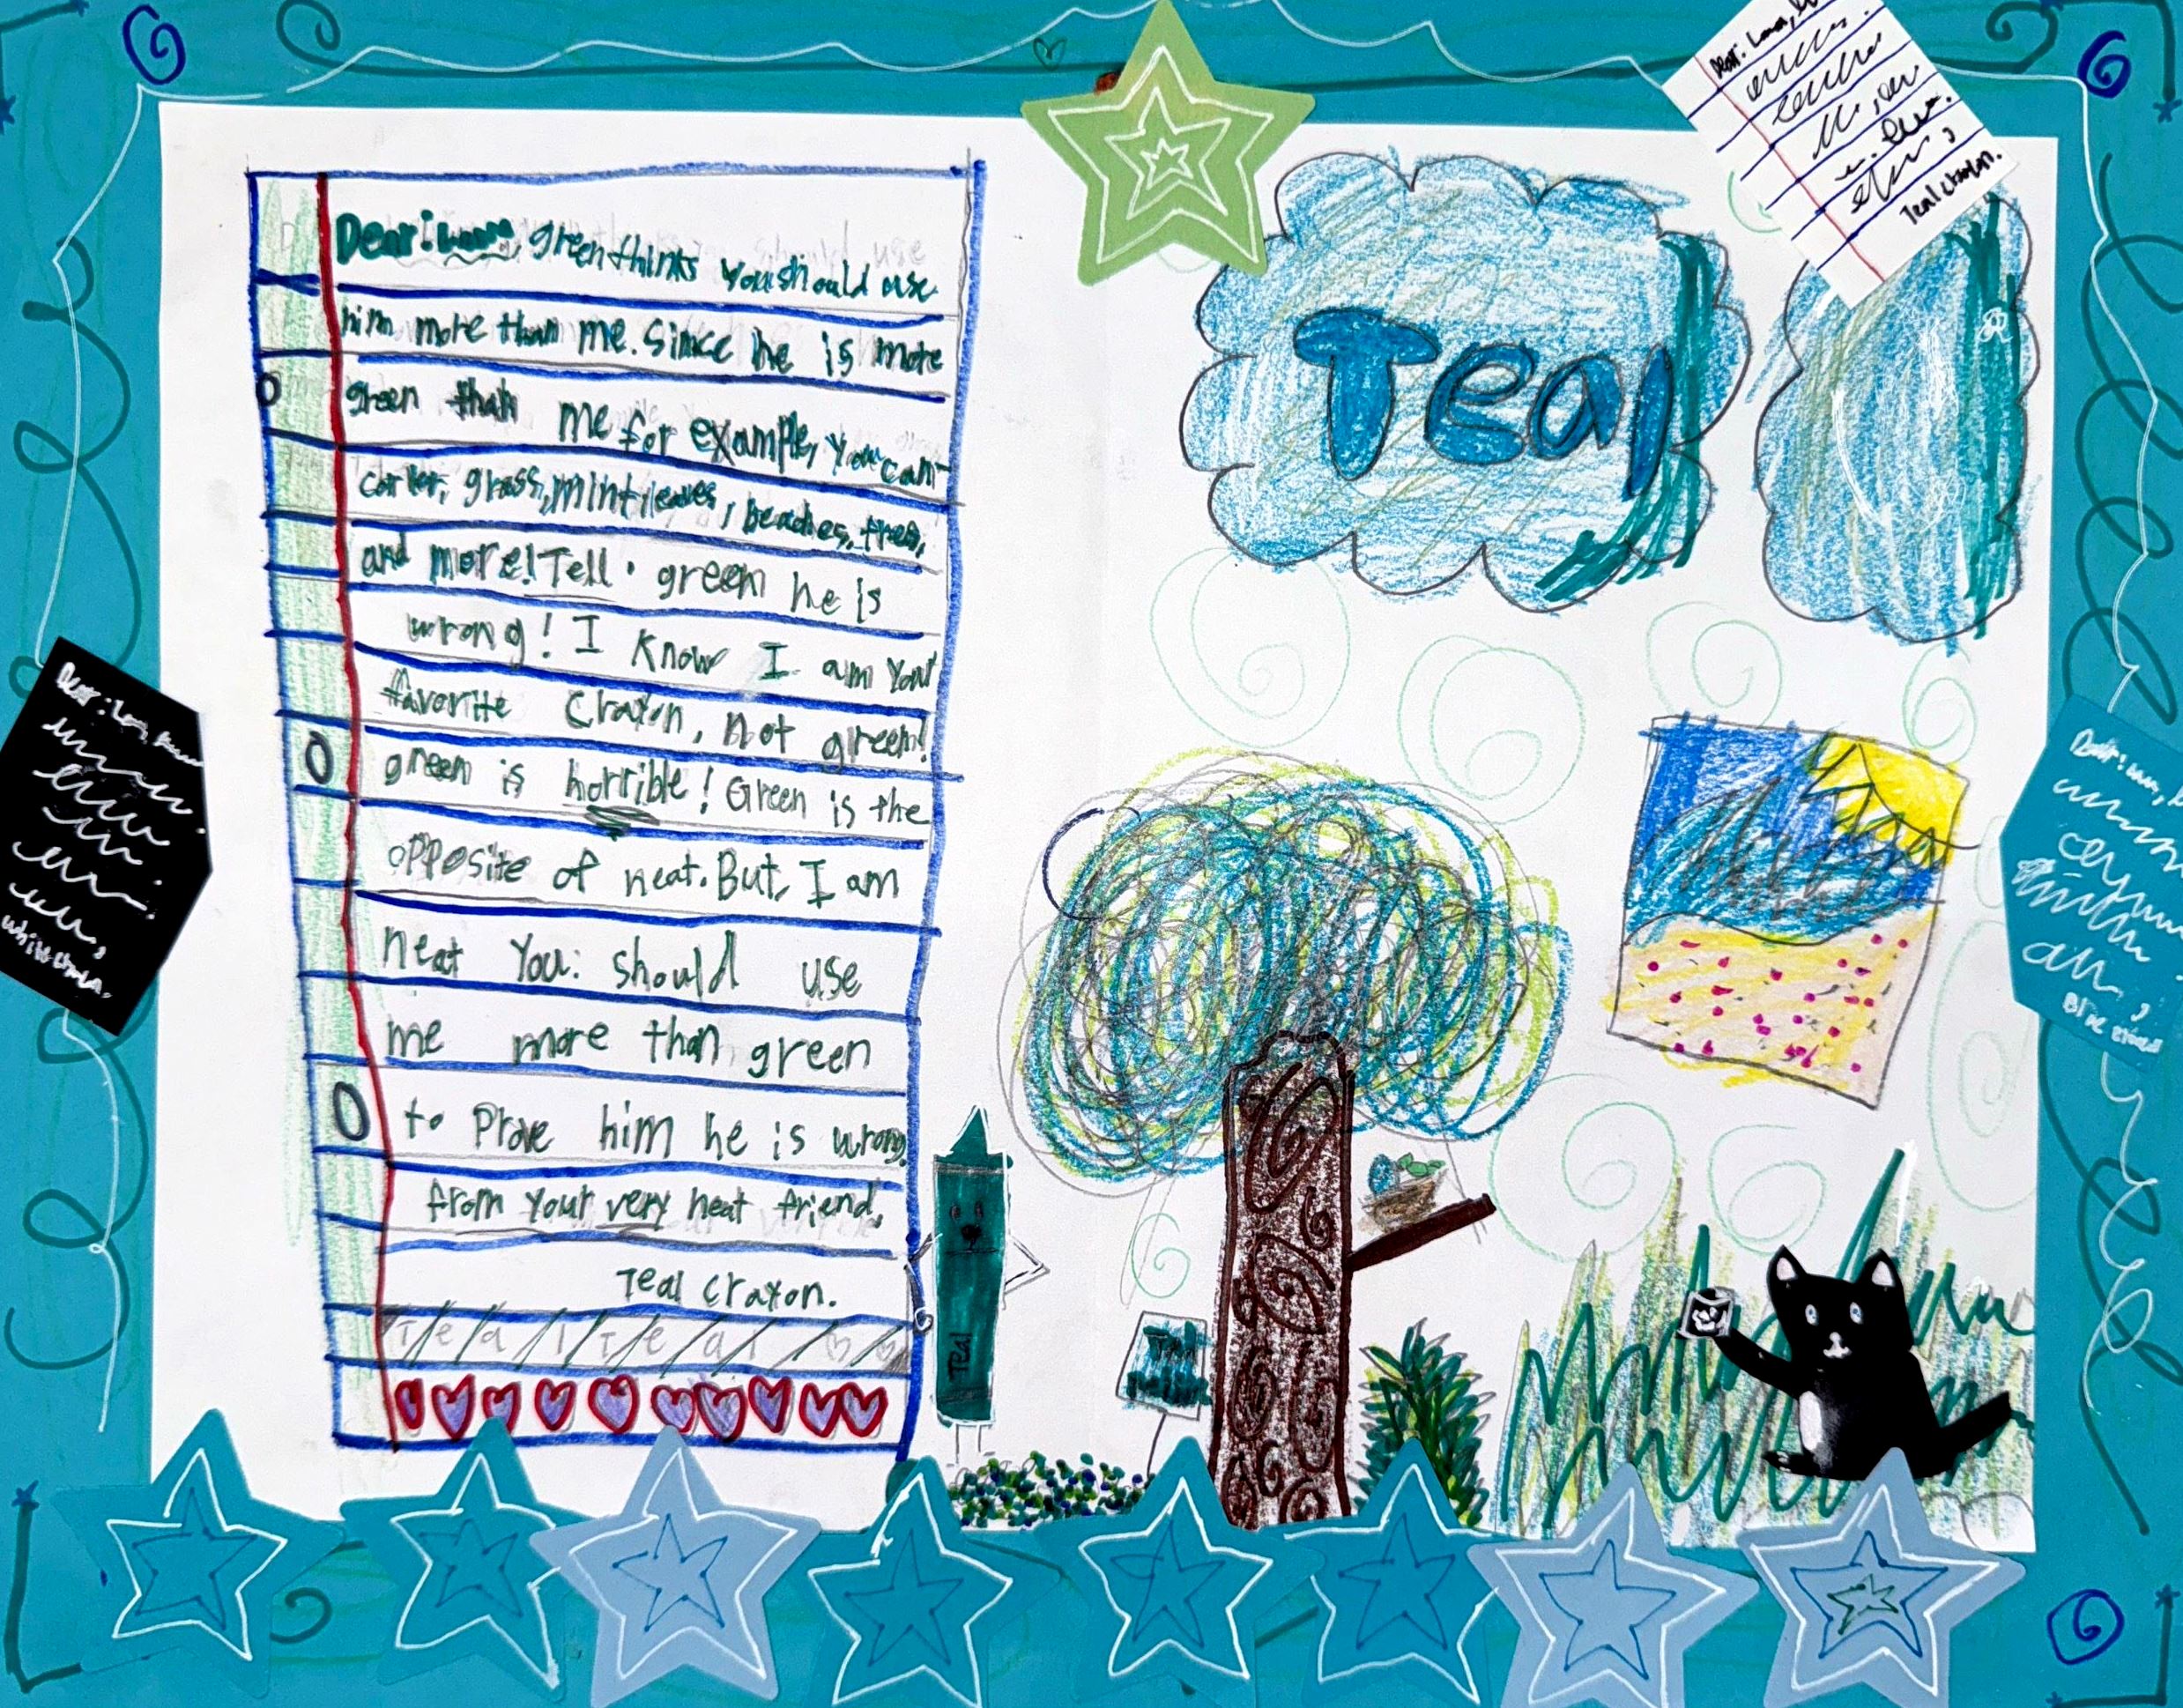 Dear: green thinks you should use
him more than me. Since he is more
green than me for example, you can
corler, grass, mint leaves, beaches, trees,
and more! Tell green he is
wrong! I know I am your
favorite crayon, not green!
green is horrible! Green is the
opposite of neat. But, I am
neat you: should use
me more than green
to prove him he is wrong.
from your very neat friend,
Teal crayon.
T/e/a/l/T/e/a/l
Teal
Teal
Dear:
Teal crayon.
Dear:
white crayon.
Dear:
Blue crayon